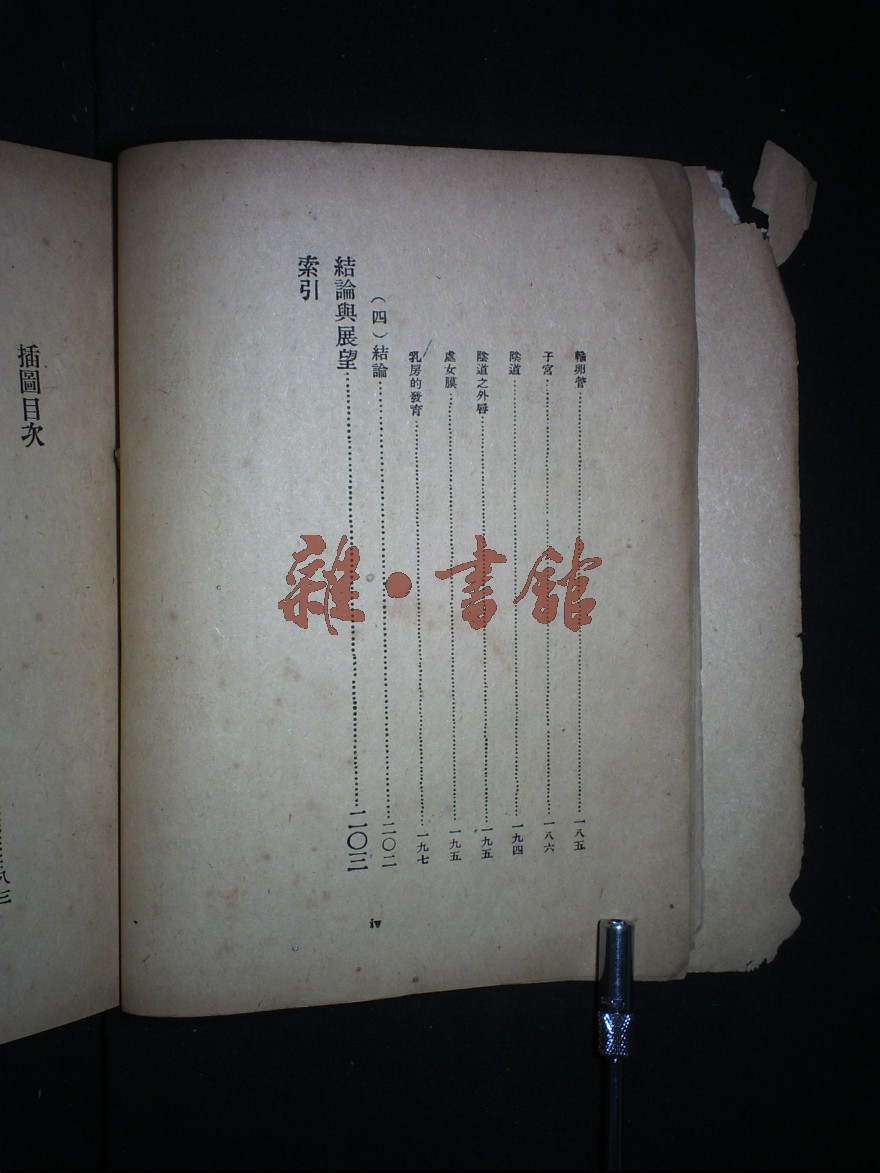 輸卵管……一八五
子宮……一八六
陰道……一九四
陰道之外唇……一九五
處女膜……一九五
乳房的發育……一九七
（四）結論……二〇二
結論與展望……二〇三
索引
iv
插圖目次
雜·書館